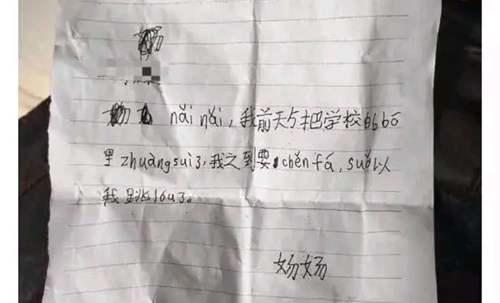 nǎi nǎi,我前天与把学校bō
里zhuàngsuì了,我之到要chěnfá,suǒ以
我跳lóu了。